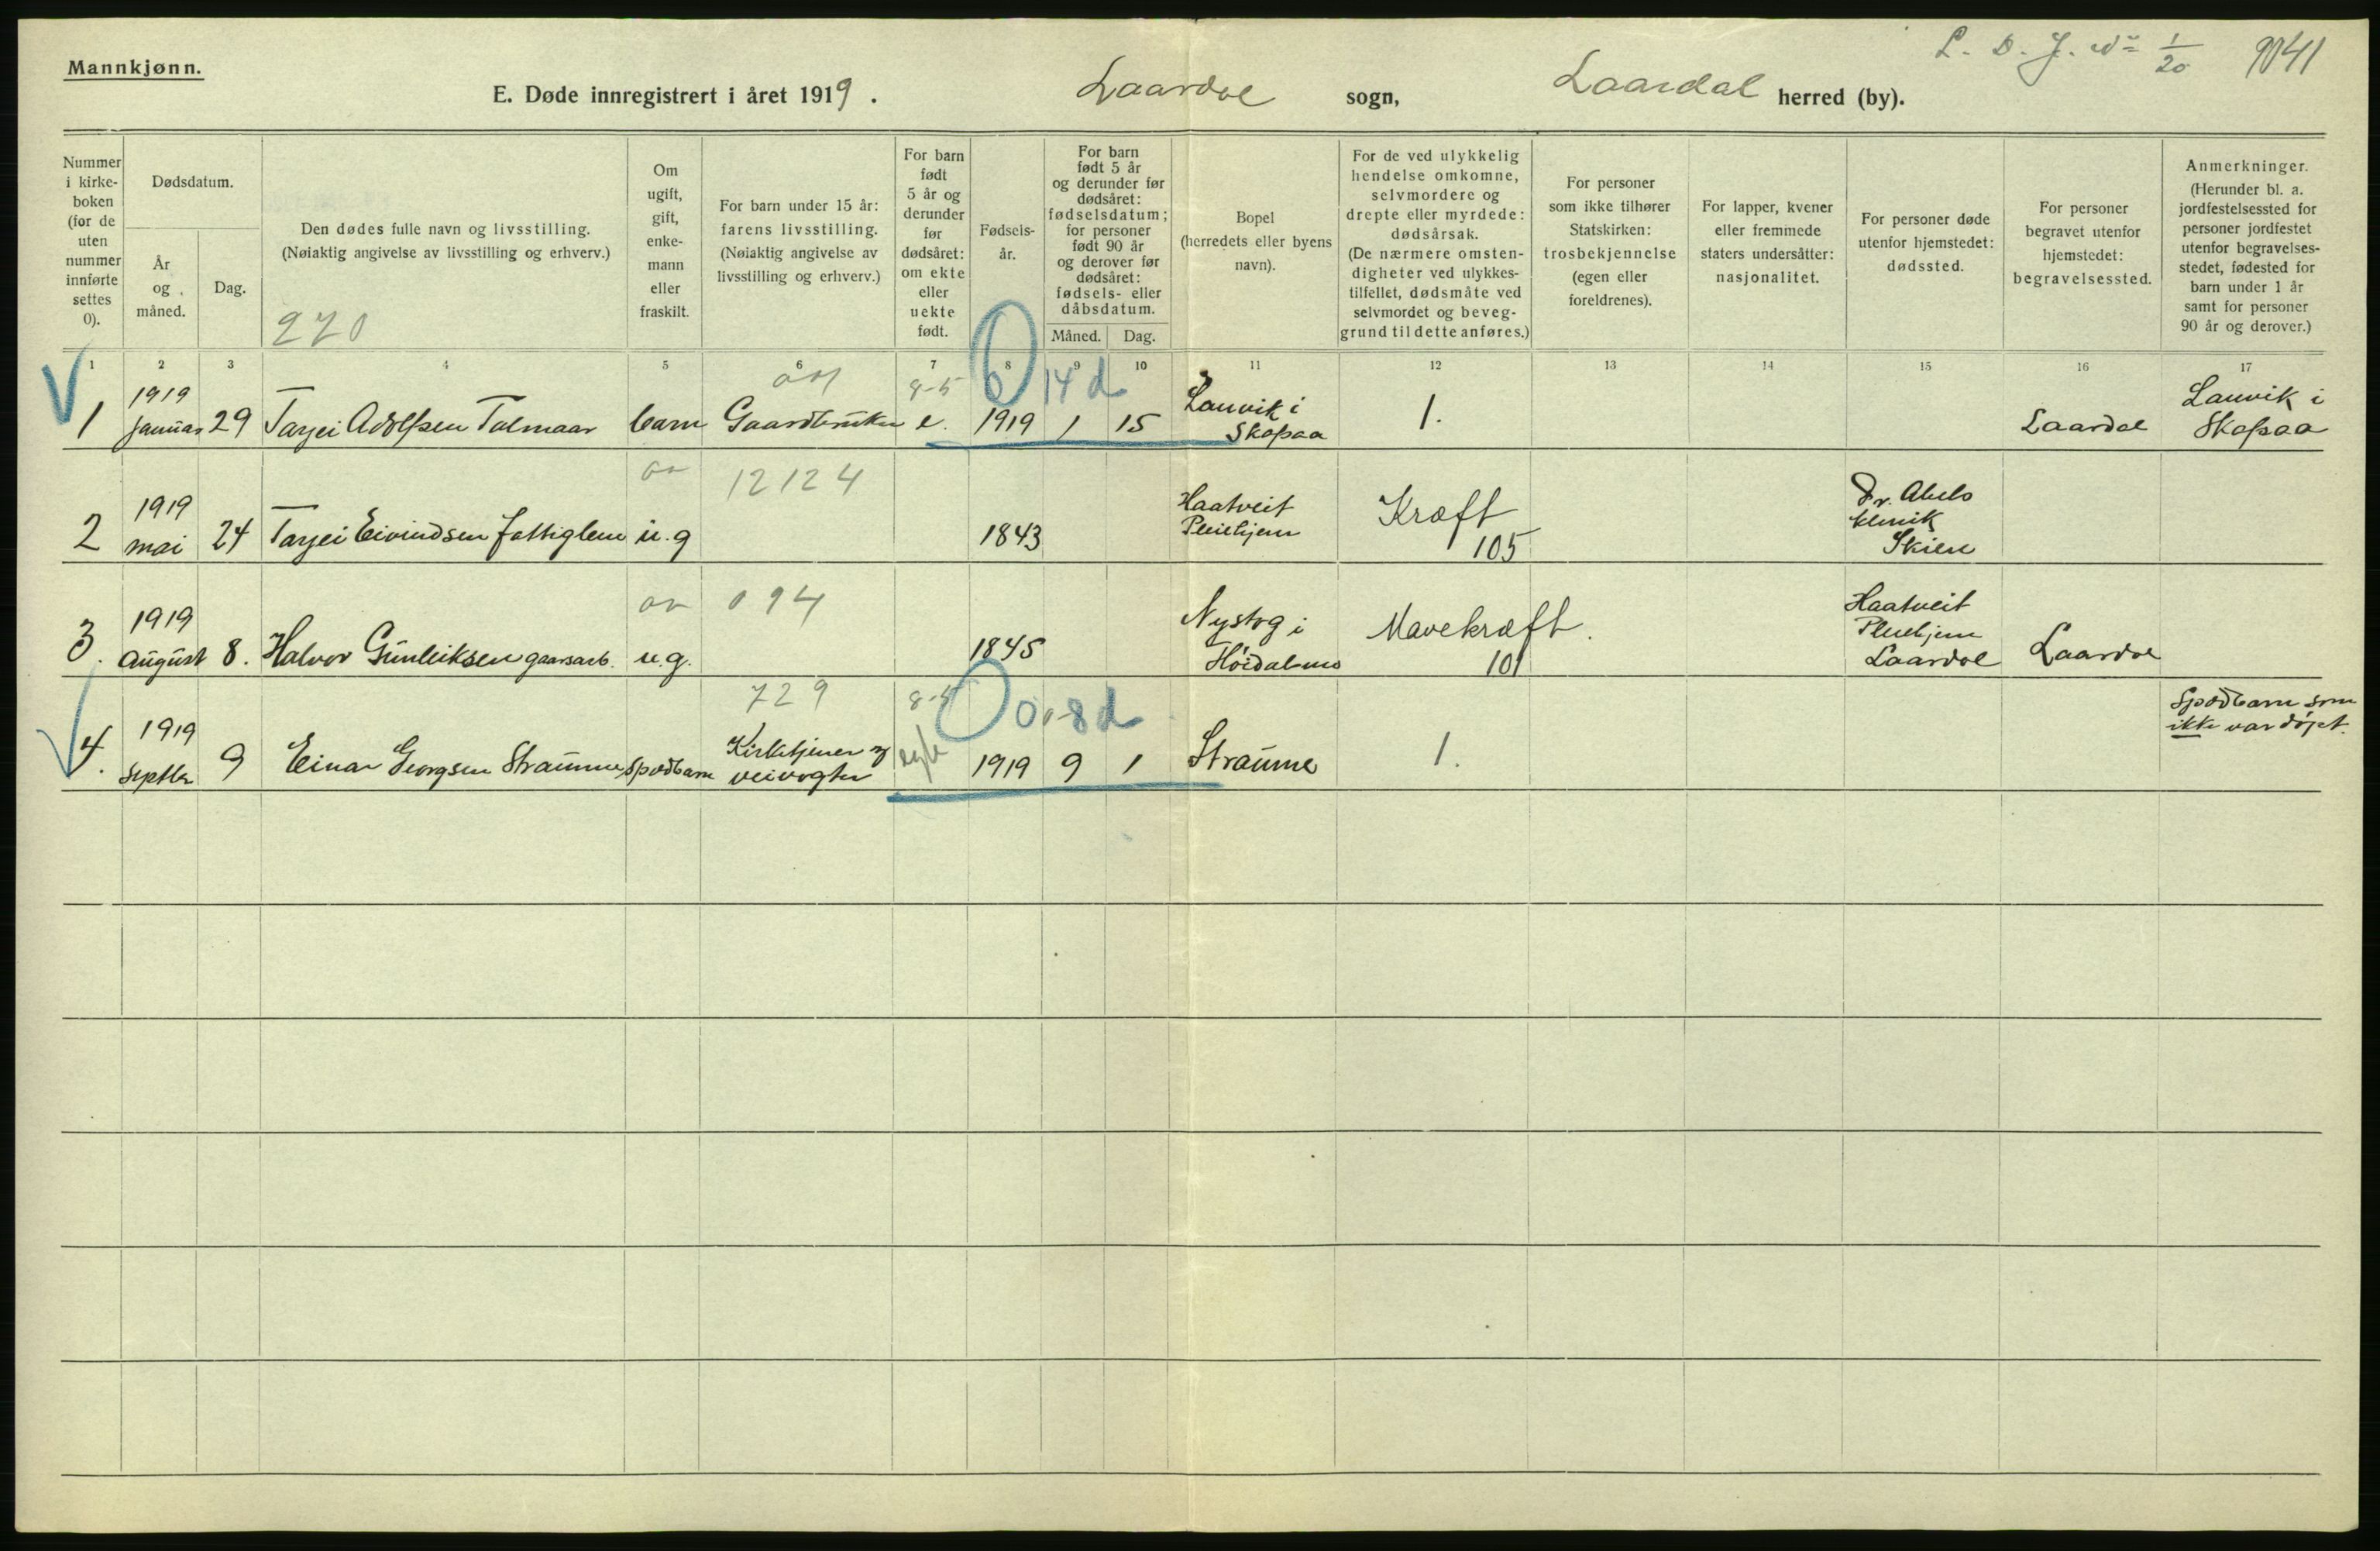 L. D. J. No 1/20 9041
Mannkjønn.
E. Døde innregistrert i året 1919. Laardal sogn, Laardal herred (by).
Nummer i kirke-boken (for de uten nummer innførte settes 0).
Dødsdatum.
År og måned.
Dag.
Den dødes fulle navn og livsstilling.
(Nøiaktig angivelse av livsstilling og erhverv.)
270
Om ugift, gift, enke-mann eller fraskilt.
For barn under 15 år: farens livsstilling.
(Nøiaktig angivelse av livsstilling og erhverv.)
For barn født 5 år og derunder før dødsåret: om ekte eller uekte født.
Fødsels-år.
For barn født 5 år og derunder før dødsåret: fødselsdatum; for personer født 90 år og derover før dødsåret: fødsels- eller dåbsdatum.
Måned. Dag.
Bopel (herredets eller byens navn).
For de ved ulykkelig hendelse omkomne, selvmordere og drepte eller myrdede: dødsårsak.
(De nærmere omsten-digheter ved ulykkes-tilfellet, dødsmåte ved selvmordet og beveg-grund til dette anføres.)
For personer som ikke tilhører Statskirken: trosbekjennelse (egen eller foreldrenes).
For lapper, kvener eller fremmede staters undersåtter: nasjonalitet.
For personer døde utenfor hjemstedet: dødssted.
For personer begravet utenfor hjemstedet: begravelsessted.
Anmerkninger.
(Herunder bl. a. jordfestelsessted for personer jordfestet utenfor begravelses-stedet, fødested for barn under 1 år samt for personer 90 år og derover.)
1 2 3 4 5 6 7 8 9 10 11 12 13 14 15 16 17
8-5 0 14 d
1 1919 januar 29 Tarjei Adolfsen Talmaar barn Gaardbruker e. 1919 1 15 Lauvik i Skafsaa 1. Laardal Lauvik i Skafsaa
12124
2 1919 mai 24 Tarjei Eivindsen fattiglem u.g 1843 Haatveit Pleiehjem Kræft 105 Dr. Abels klinik Skien
094
3. 1919 August 8. Halvor Gunleiksen gaarsarb. u.g. 1845 Nystog i Høidalsmo Mavekræft. 101 Haatveit Pleiehjem Laardal Laardal
729 8-5 0 0-8 d
4. 1919 Septbr 9 Einar Georgsen Straume spædbarn Kirketjener og veivogter egte 1919 9 1 Straume 1. Spædbarn som ikke var døpt.